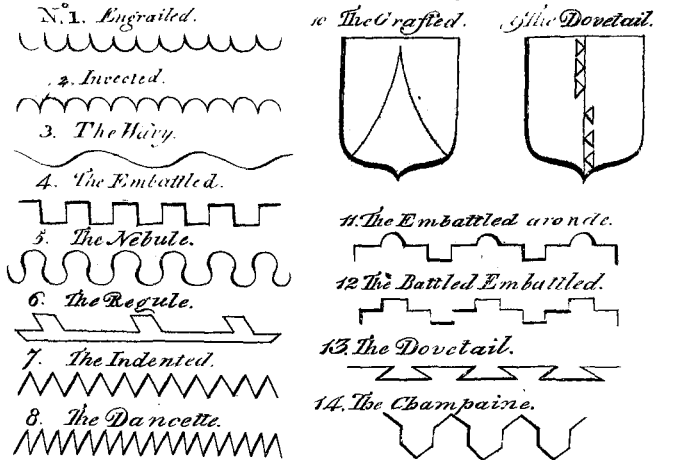 No. 1. Engrailed.
2. Invected.
3. The Wavy.
4. The Embattled.
5. The Nebule.
6. The Regule.
7. The Indented.
8. The Dancette.
10 The Grafted.
9 The Dovetail.
11. The Embattled aronde.
12 The Battled Embattled.
13. The Dovetail.
14. The Champaine.